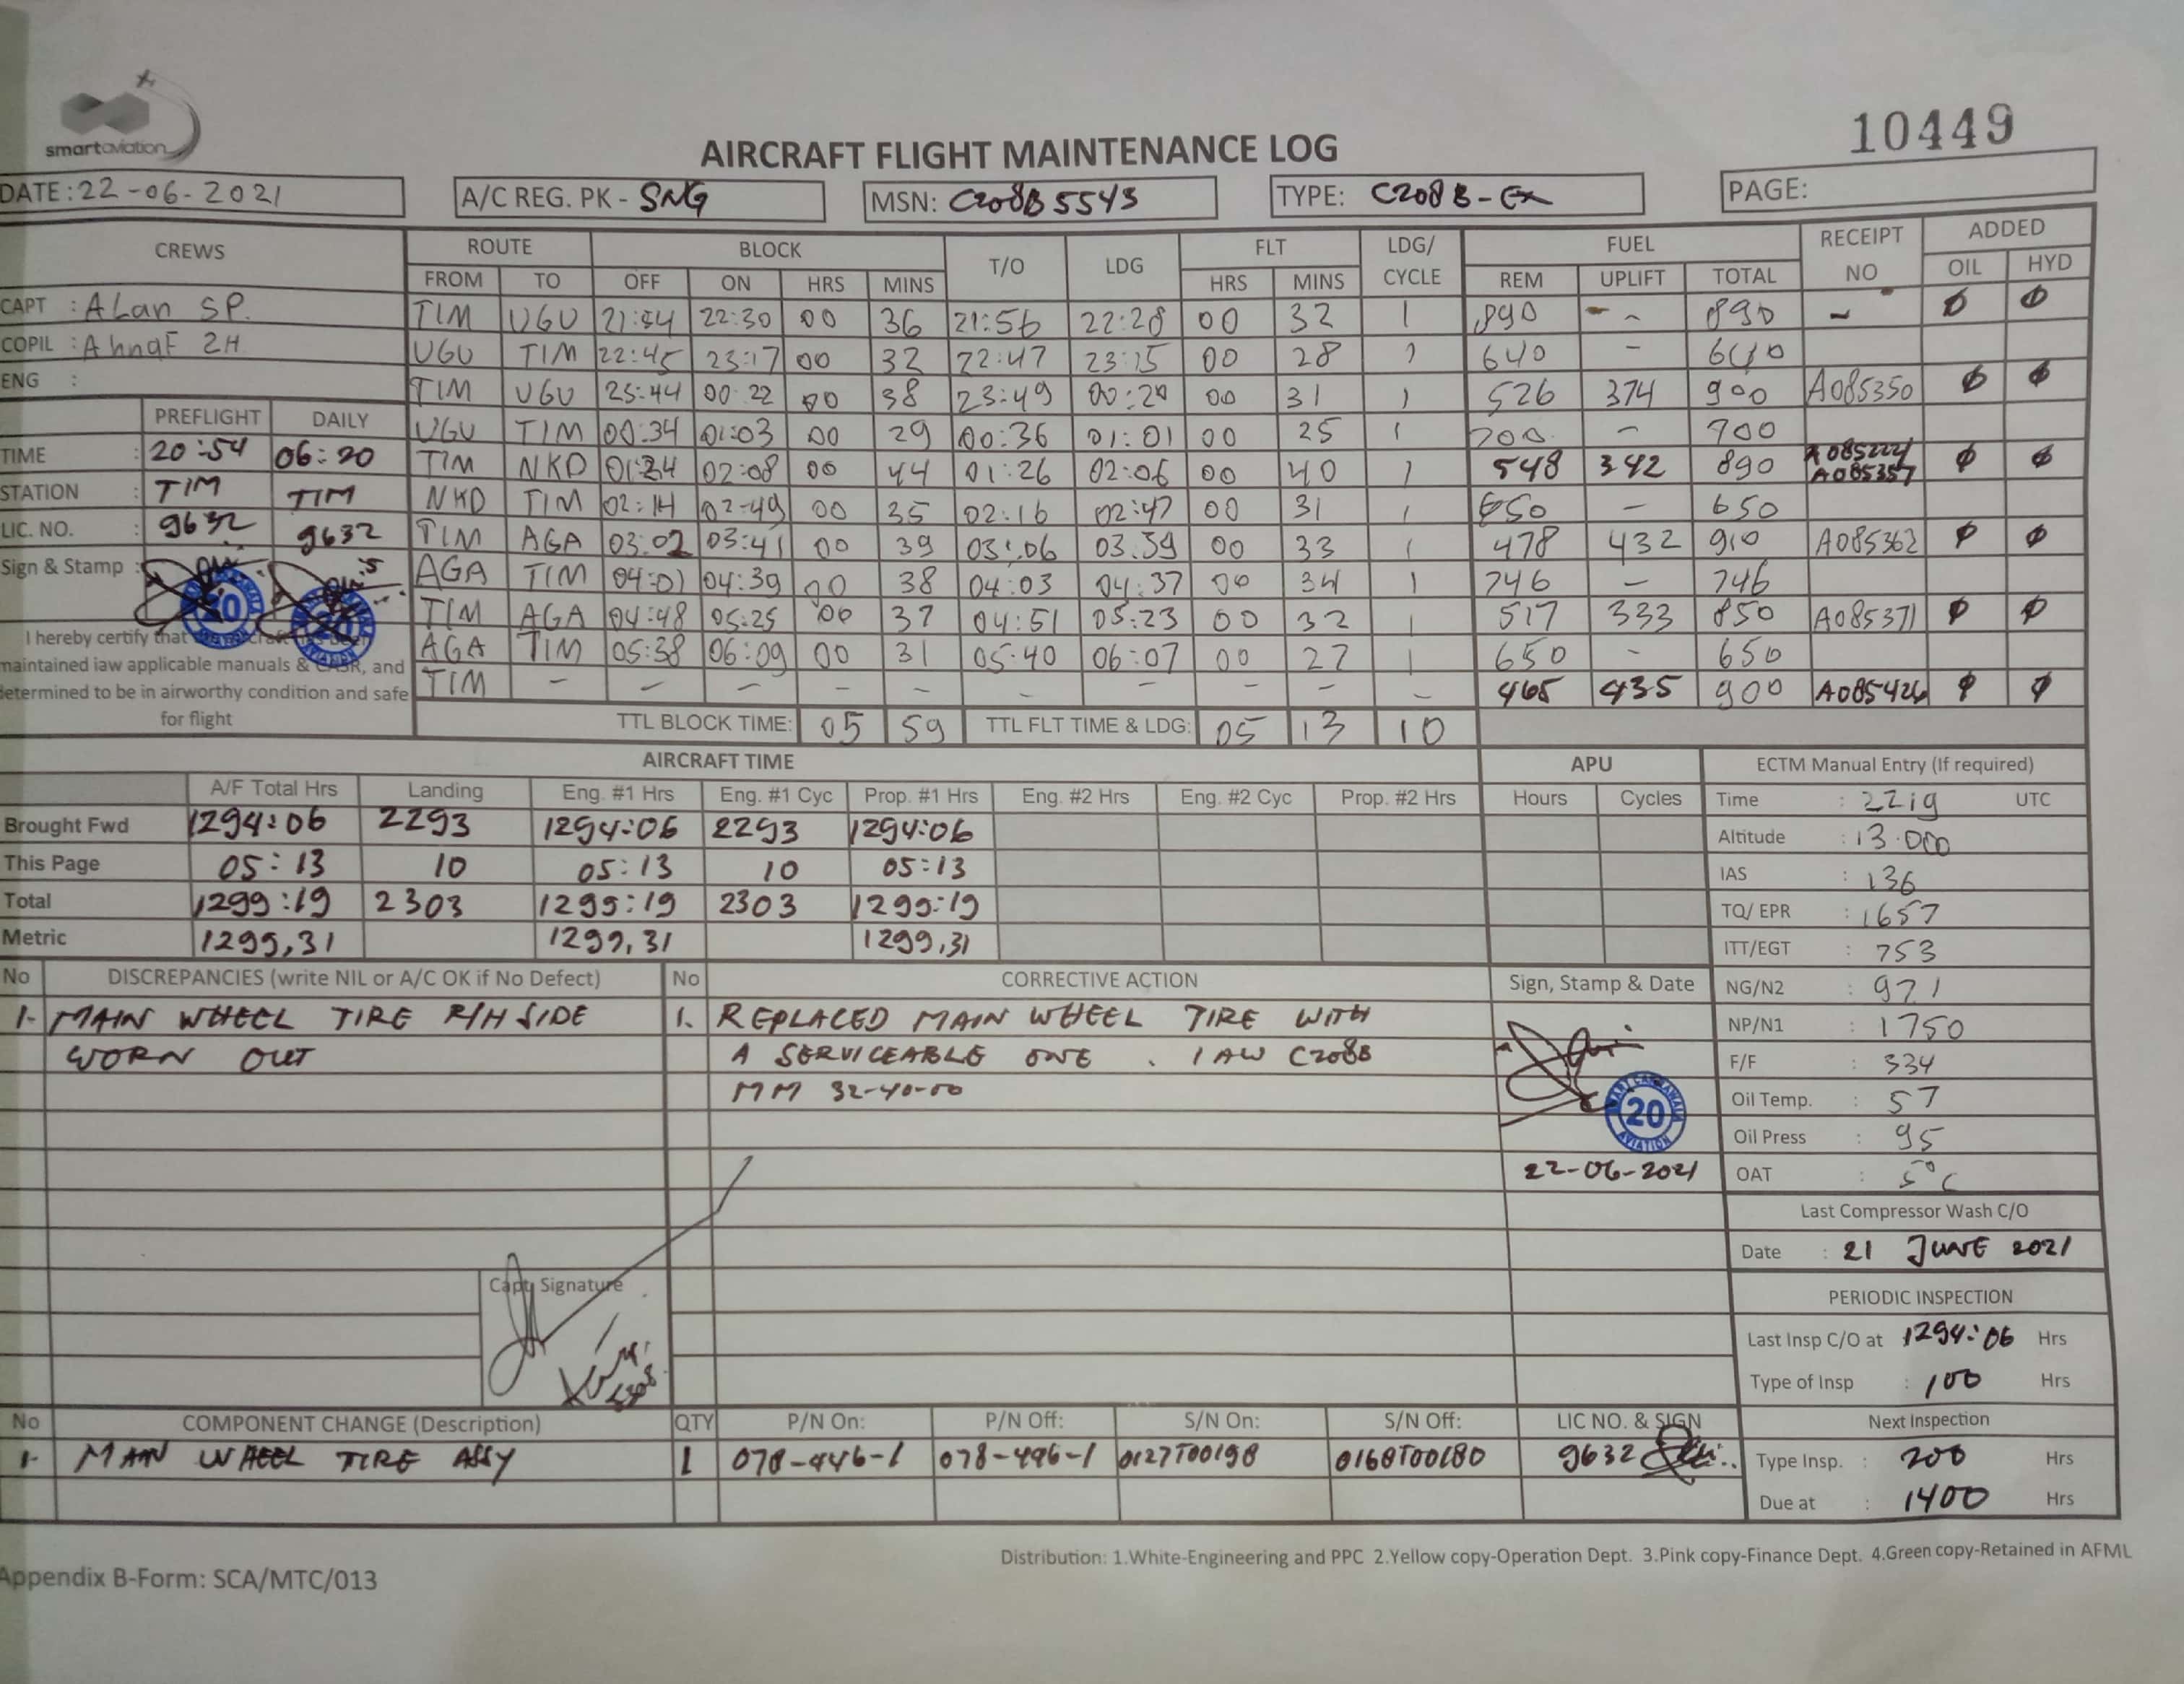 smartaviation
10449
AIRCRAFT FLIGHT MAINTENANCE LOG
DATE: 22-06-2021 A/C REG. PK - SNG MSN: C208B5543 TYPE: C208B-EX PAGE:
CREWS ROUTE BLOCK T/O LDG FLT LDG/ CYCLE FUEL RECEIPT NO ADDED
FROM TO OFF ON HRS MINS HRS MINS REM UPLIFT TOTAL OIL HYD
CAPT : ALan SP. TIM UGU 21:54 22:30 00 36 21:56 22:28 00 32 1 890 - - 890 - Ø Ø
COPIL : AhnaF ZH UGU TIM 22:45 23:17 00 32 22:47 23:15 00 28 1 640 - 640
ENG : TIM UGU 23:44 00:22 00 38 23:49 00:20 00 31 1 526 374 900 A085350 Ø Ø
PREFLIGHT DAILY UGU TIM 00:34 01:03 00 29 00:36 01:01 00 25 1 700 - 700
TIME : 20:54 06:20 TIM NKD 01:24 02:08 00 44 01:26 02:06 00 40 1 548 342 890 A085357 Ø Ø
STATION : TIM TIM NKD TIM 02:14 02:49 00 35 02:16 02:47 00 31 1 650 - 650
LIC. NO. : 9632 9632 TIM AGA 03:02 03:41 00 39 03:06 03.39 00 33 1 478 432 910 A085362 Ø Ø
Sign & Stamp : 20 20 AGA TIM 04:01 04:39 00 38 04:03 04:37 00 34 1 746 - 746
TIM AGA 04:48 05:25 00 37 04:51 05:23 00 32 1 517 333 850 A085371 Ø Ø
I hereby certify that the aircraft has been
maintained iaw applicable manuals & CASR, and AGA TIM 05:38 06:09 00 31 05:40 06:07 00 27 1 650 - 650
determined to be in airworthy condition and safe TIM - - - - - - - - - - 465 435 900 A085426 Ø Ø
for flight TTL BLOCK TIME: 05 59 TTL FLT TIME & LDG: 05 13 10
AIRCRAFT TIME APU ECTM Manual Entry (If required)
A/F Total Hrs Landing Eng. #1 Hrs Eng. #1 Cyc Prop. #1 Hrs Eng. #2 Hrs Eng. #2 Cyc Prop. #2 Hrs Hours Cycles Time : 2219 UTC
Brought Fwd 1294:06 2293 1294:06 2293 1294:06 Altitude : 13.000
This Page 05:13 10 05:13 10 05:13 IAS : 136
Total 1299:19 2303 1299:19 2303 1299:19 TQ/ EPR : 1657
Metric 1299,31 1299,31 1299,31 ITT/EGT : 753
No DISCREPANCIES (write NIL or A/C OK if No Defect) No CORRECTIVE ACTION Sign, Stamp & Date NG/N2 : 97.1
1- MAIN WHEEL TIRE R/H SIDE 1. REPLACED MAIN WHEEL TIRE WITH NP/N1 : 1750
WORN OUT A SERVICEABLE ONE . IAW C208B F/F : 334
MM 32-40-00 Oil Temp. : 57
20 AVIATION Oil Press : 95
22-06-2021 OAT : 5°C
Last Compressor Wash C/O
Date : 21 JUNE 2021
Capt Signature PERIODIC INSPECTION
Last Insp C/O at 1294:06 Hrs
Type of Insp : 100 Hrs
No COMPONENT CHANGE (Description) QTY P/N On: P/N Off: S/N On: S/N Off: LIC NO. & SIGN Next Inspection
1- MAIN WHEEL TIRE ASSY 1 078-446-1 078-446-1 0127T00198 0168T00180 9632 Type Insp. : 200 Hrs
Due at : 1400 Hrs
Distribution: 1.White-Engineering and PPC 2.Yellow copy-Operation Dept. 3.Pink copy-Finance Dept. 4.Green copy-Retained in AFML
Appendix B-Form: SCA/MTC/013